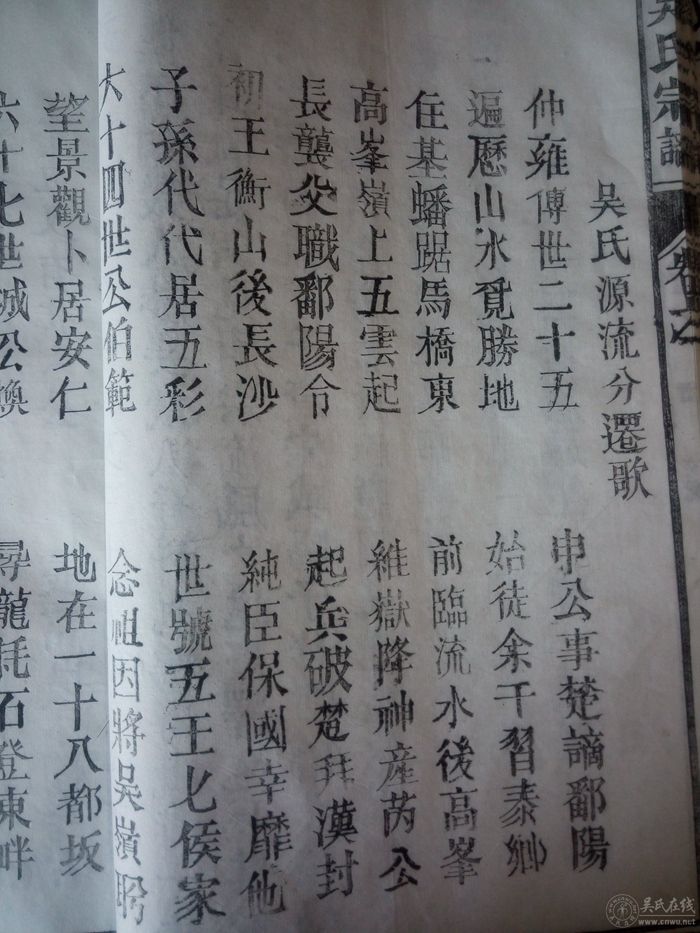 吴氏宗譜
卷之
吴氏源流分遷歌
仲雍傳世二十五 申公事楚謫鄱陽
遍歷山水覓勝地 始徒余干習泰鄉
住基蟠踞馬橋東 前臨流水後高峯
高峯嶺上五雲起 維嶽降神産芮公
長襲父職鄱陽令 起兵破楚拜漢封
初王衡山後長沙 純臣保國幸靡他
子孫代代居五彩 世號五王七侯家
六十四世公伯範 念祖因將吴嶺
望景觀卜居安仁 地在一十八都坂
六十七世誠公換 尋龍托石澄東畔
吴氏在线
www.cnwu.net